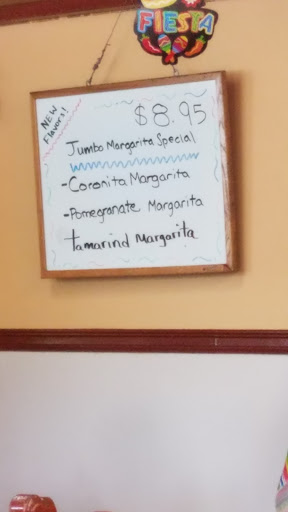 FIESTA
NEW
Flavors!
$8.95
Jumbo Margarita Special
-Coronita Margarita
-Pomegranate Margarita
tamarind Margarita